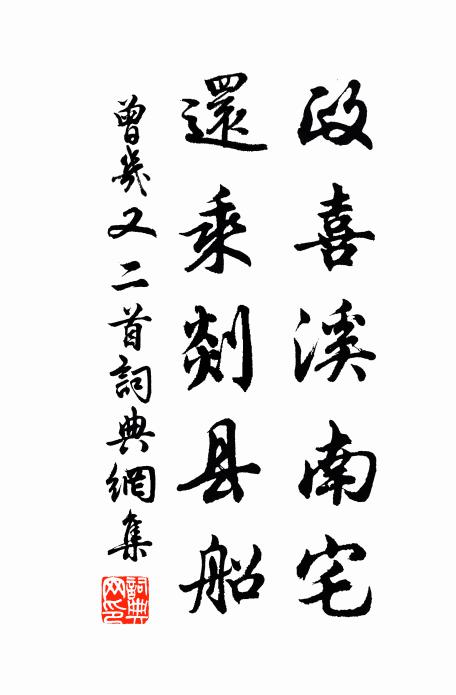 政喜溪南宅
還乘剡县船
曾幾又二首詞典網集
詞典網印